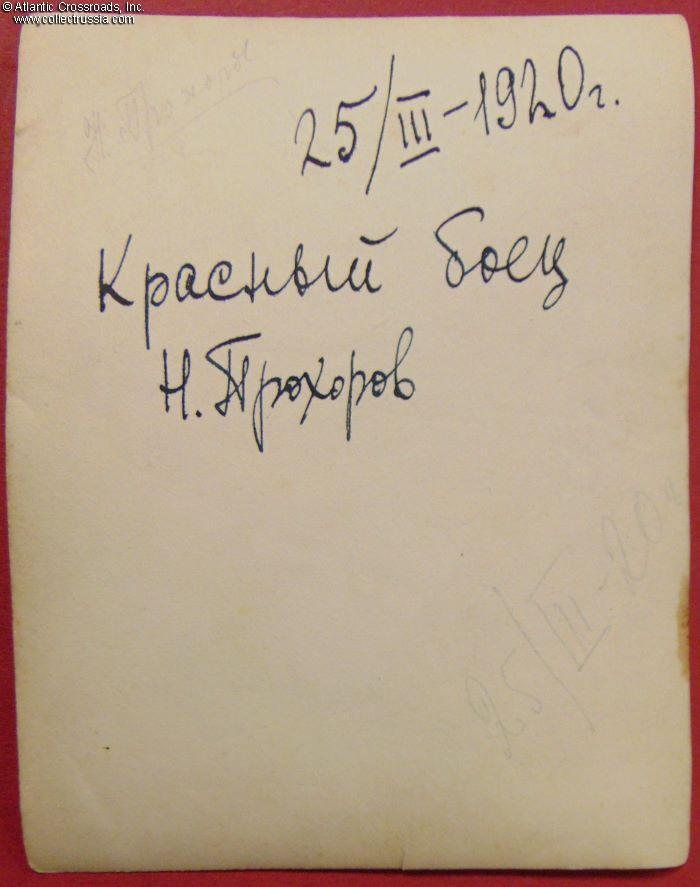 © Atlantic Crossroads, Inc.
www.collectrussia.com
Н. Прохоров
25/III-1920г.
Красный боец
Н. Прохоров
25/III-20г